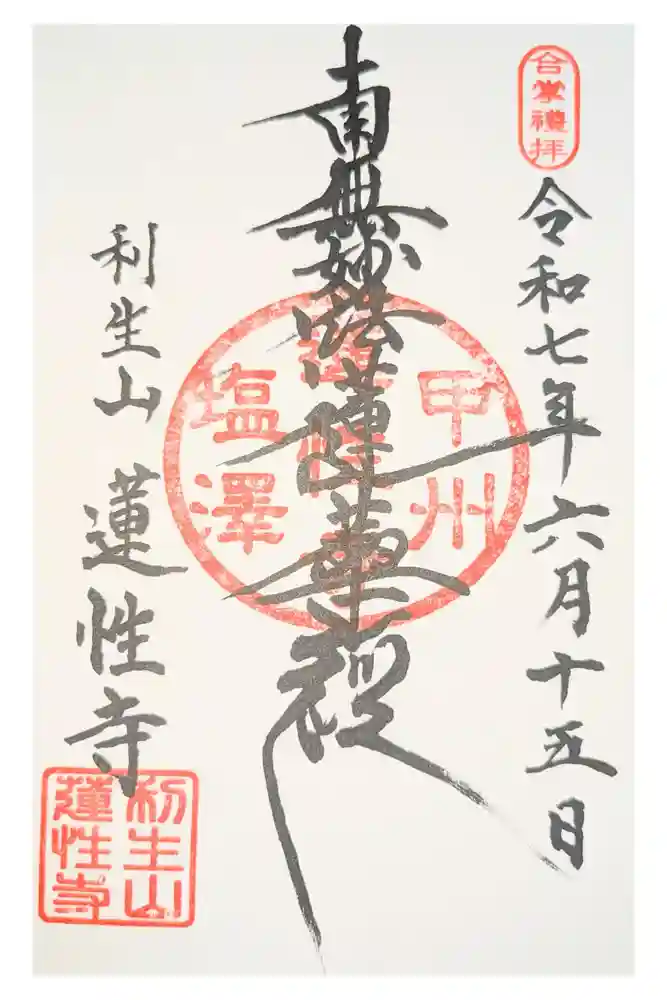 合掌禮拝
令和七年六月十五日
南無妙法蓮華経
甲州
蓮性寺
塩澤
利生山 蓮性寺
利生山
蓮性寺